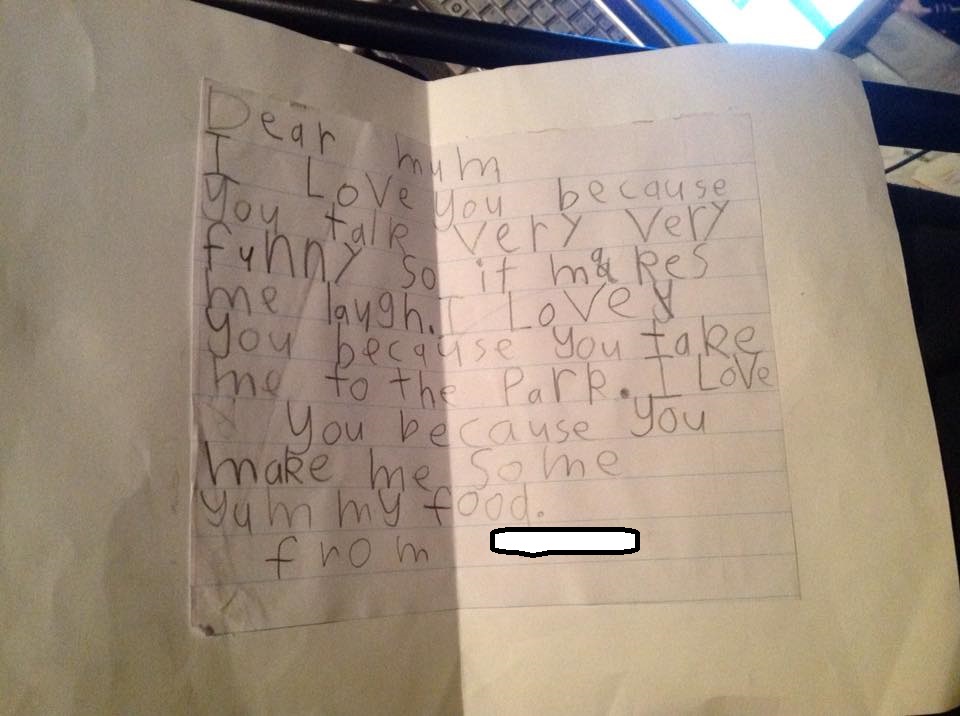 Dear mum
I Love you because
you talk very very
funny so it makes
me laugh. I Love y
you because you take
me to the Park. I Love
you because you
make me some
yummy food.
from